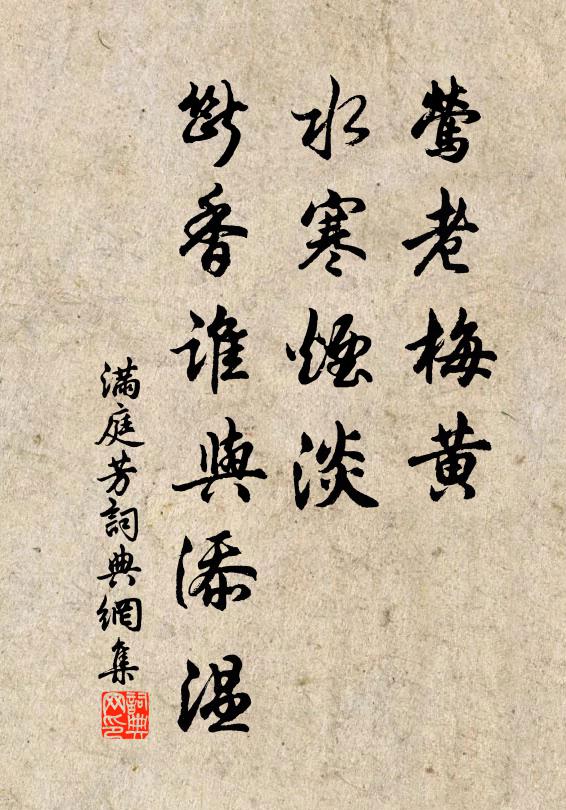 鶯老梅黄
水寒煙淡
斷香誰與添温
滿庭芳詞典網集
詞典网印